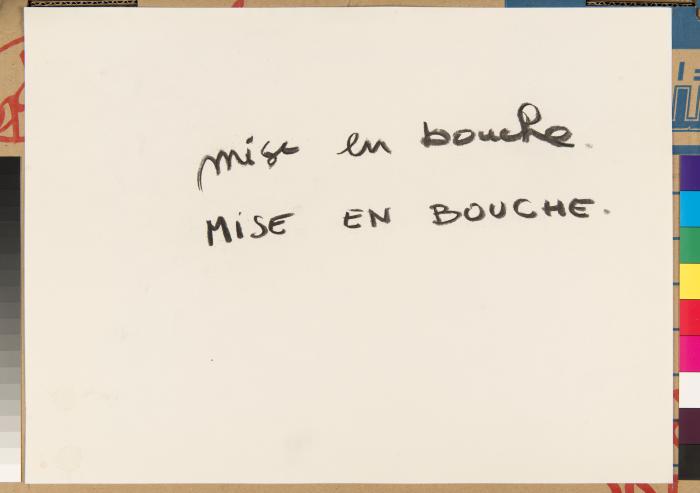 mise en bouche.
MiSE EN BOUCHE.